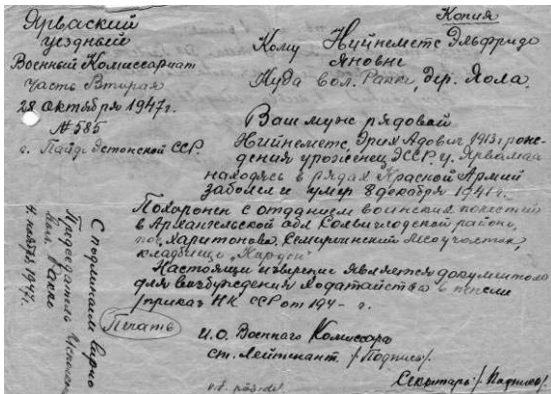 Копия
Ярваский
уездный
Военный Комиссариат
Часть Вторая
28 октября 1947г.
№ 585
г. Пайде Эстонской ССР.
Кому Нийнеметс Эльфриде
Яновне
Куда вол. Ракке, дер. Яола.
Ваш муж рядовой
Нийнеметс, Эрих Адович 1913г рож-
дения уроженец ЭССР у. Ярвамаа
находясь в рядах Красной Армий
заболел и умер 8 декабря 1941г.
Похоронен с отданием воинских почестей
в Архангельской обл Сольвычегодской районе,
пос. Харитоново, Семиринский лесоучасток
кладбище
Настоящий извещение является документом
для возбуждения ходатайства о пенсии
/приказ НК ССР от 194- г.
Печать
И.О. Военного Комиссара
ст. Лейтенант /Подпись/.
Секретарь /Подпись/.
С подлинным верно
Председатель
Ракке
4. ноября, 1947г.